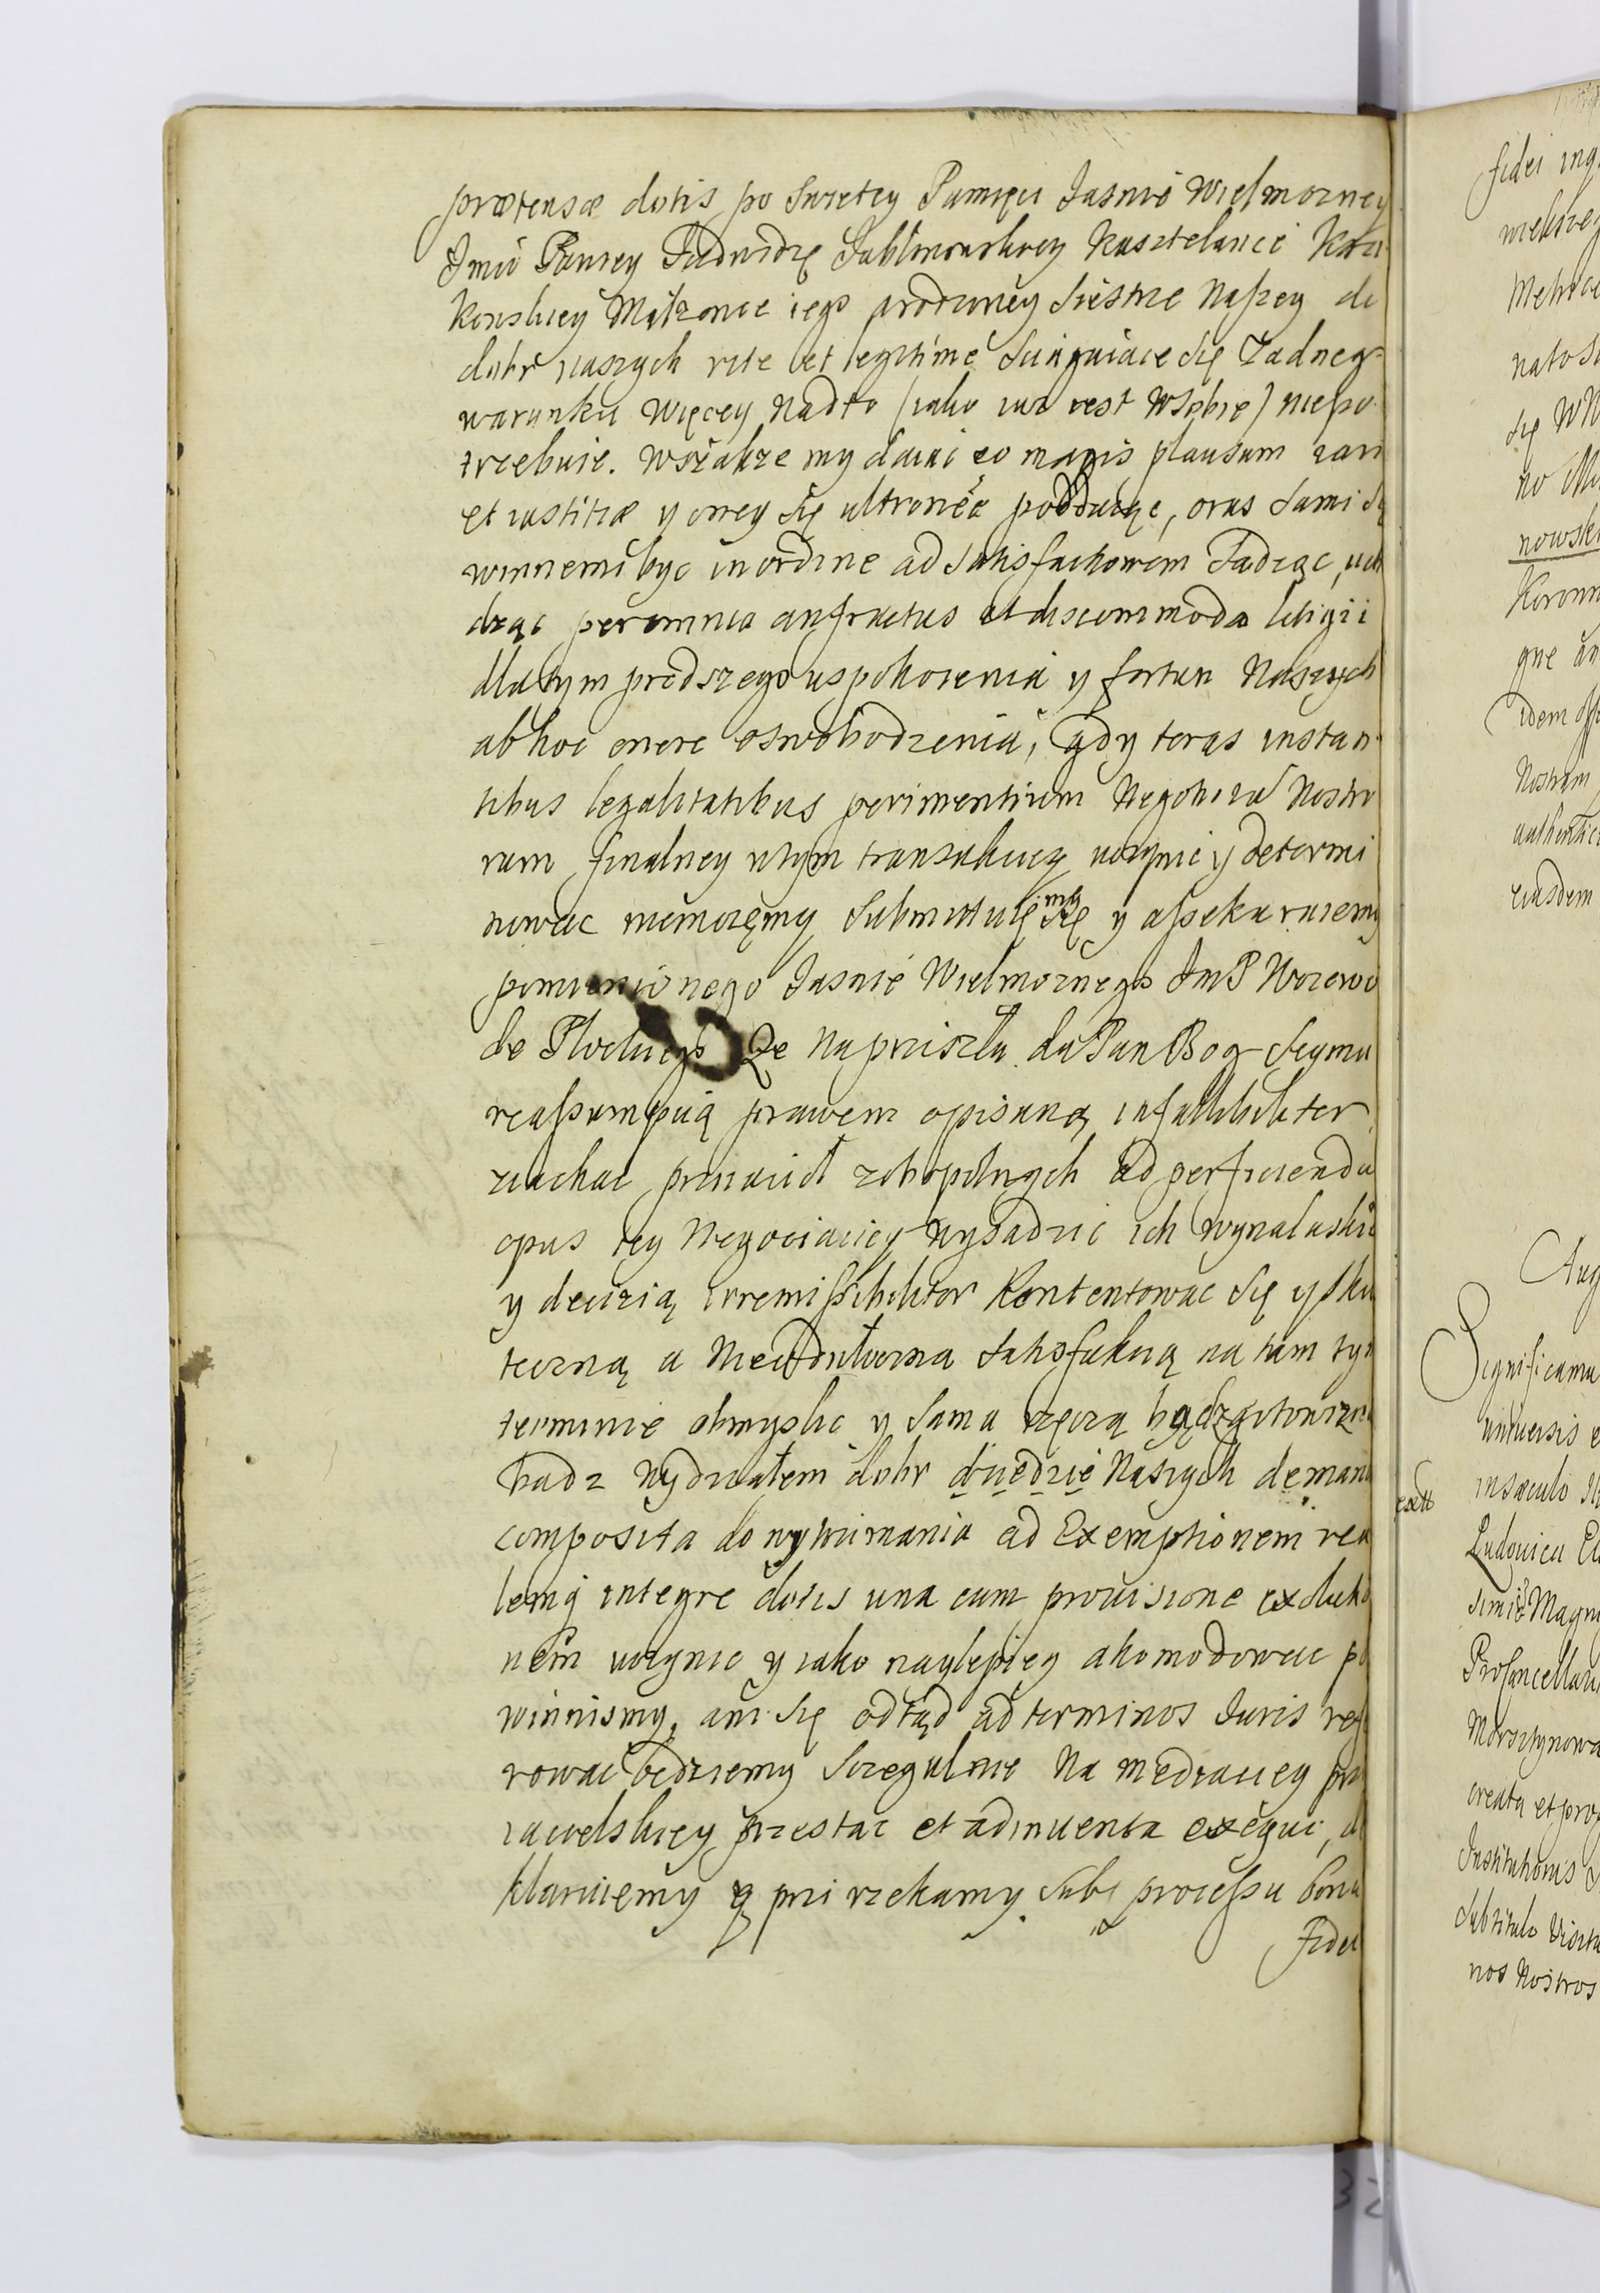 prætensæ dotis po Swietey Pamięci Jasnie Wielmozney
Jmci Paniey Jadwidze Jabłonowskiey Kasztelance Kra
kowskiey Małzonce iego urodzoney Siestrze Naszey do
dobr naszych rite et legitime sciągaiące się Zadnego
warunku więcey nadto (iako iuz iest w Sobie) niepo
trzebuie. Wszakze my daiąc eo magis plausum
et iustitiæ y oney się ultronee poddaiąc, oraz Sami
winnemi byc in ordine ad Satisfactionem Sadząc, ucho
dząc per omnia anfractus et discommoda litigii
dla tym prędszego uspokoienia y fortun Naszych
ab hoc onere oswobodzenia, gdy teraz instan
tibus legalitatibus perimentium Negotiorum Nostro
rum finalney w tym transakciey uczynic y determi
nowac niemozemy Submittuięmy się y assekuruiemy
pomienionego Jasnie Wielmoznego JmP Woiewo
de Płockiego Ze na przyszłą da Pan Bog Seymu
reassumpcią prawem opisaną infallibiliter
ziachac przyiacioł zobopolnych ad perficiendu
opus tey Negociaciey wysadzic ich wynalaskie
y decizią irremissibiliter Kontentowac Się y sku
teczną a Nieodwłoczna Satisfakcią na tam tym
terminie obmyslic y Sama rzęczą bądz gotowizną
badz wydziałem dobr dziedzie Naszych de manu
composita do wytrzimania ad Exemptionem rea
lemq integre dotis una cum prouisione exolutio
nem uczynic y iako naylepiey akomodowac po
winnismy, ani Się odtąd ad terminos Juris refe
rowac będziemy Szczegulnie Na mediaciey przy
iacielskiey przestac et adinuenta exequi, de
klaruiemy y przirzekamy Sub processu bona
Fidei
fidei
Metr
się
nowsk
Koronn
idem
Nostram
authentic
eiusdem
Aug
Significamu
uniuersis e
in sæculo
Ludouicu
Magn
Procancellari
Morsztynowa
creata et pro
Institutionis
Sub titulo
nos Nostros